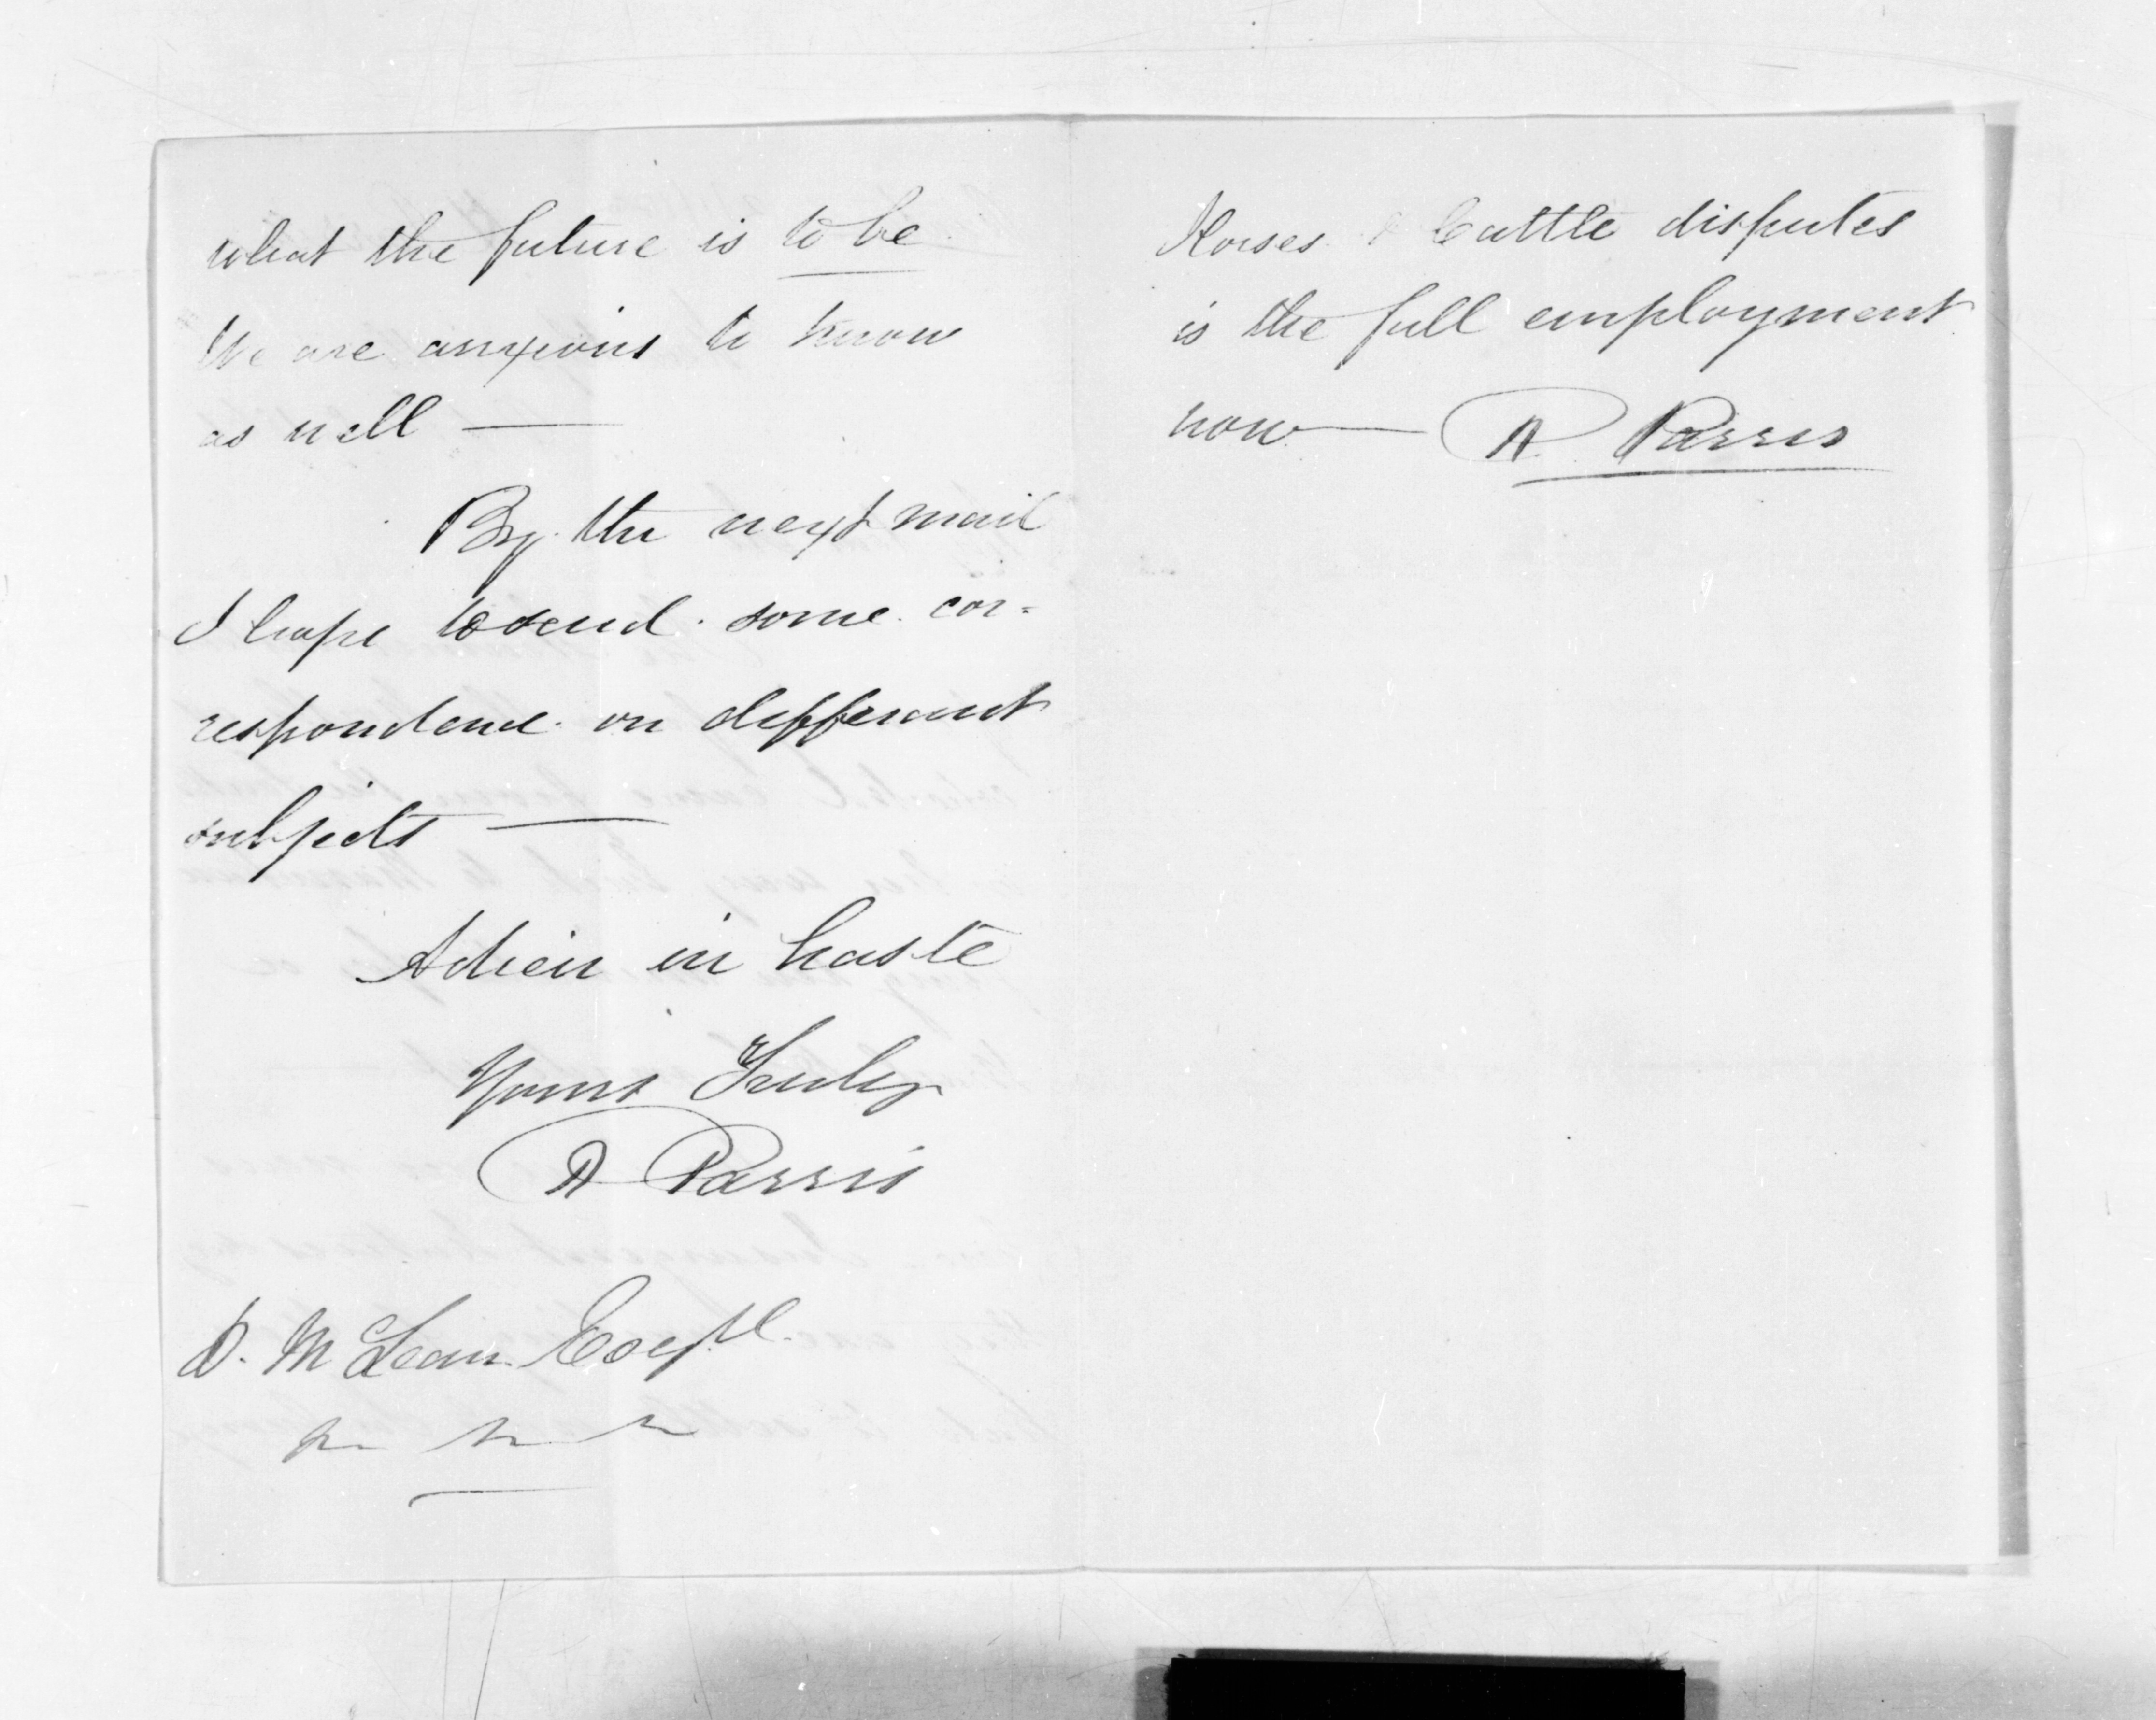 what the future is to be
We are anxious to know
as well —
By the next mail
I hope to send some cor=
respondence on differant
subjects —
Adieu in haste
Yours Truly
R Parris
D. McLean Esqre.
Horses & Cattle disputes
is the full employment
now — R Parris